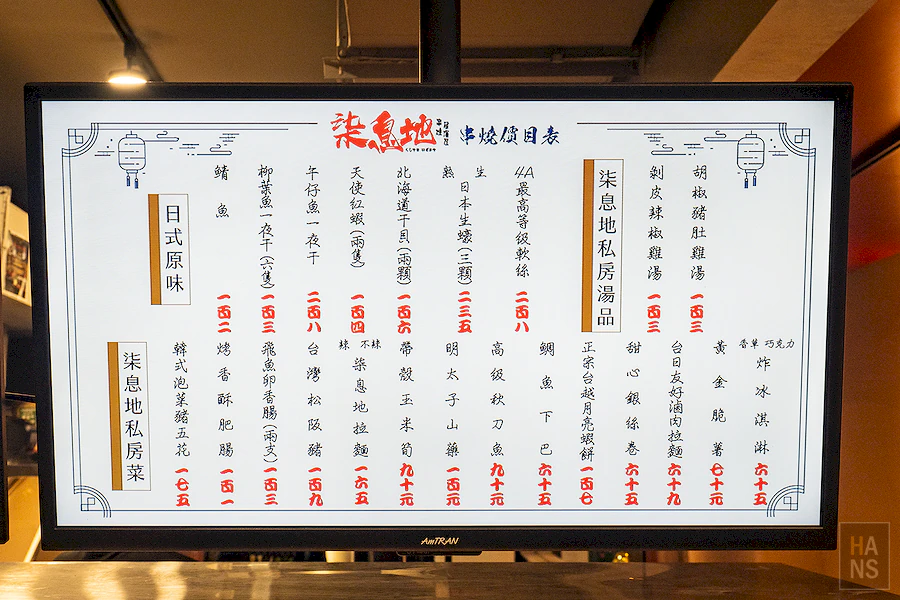 柒息地
串燒價目表
胡椒豬肚雞湯 一百三
剝皮辣椒雞湯 一百三
柒息地私房湯品
4A最高等級軟絲 二百八
生 熟 日本生蠔(三顆) 二三五
北海道干貝(兩顆) 一百六
天使紅蝦(兩隻) 一百四
午仔魚一夜干 二百八
柳葉魚一夜干(六隻) 一百三
鯖魚 一百二
日式原味
香草 巧克力 炸冰淇淋 六十五
黃金脆薯 七十元
台日友好滷肉拉麵 六十九
甜心銀絲卷 六十五
正宗台越月亮蝦餅 一百七
鯛魚下巴 六十五
高級秋刀魚 九十元
明太子山藥 一百元
帶殼玉米筍 九十元
辣 不辣 柒息地拉麵 一六五
台灣松阪豬 一百九
飛魚卵香腸(兩支) 一百三
烤香酥肥腸 一百一
韓式泡菜豬五花 一七五
柒息地私房菜
AmTRAN
HANS